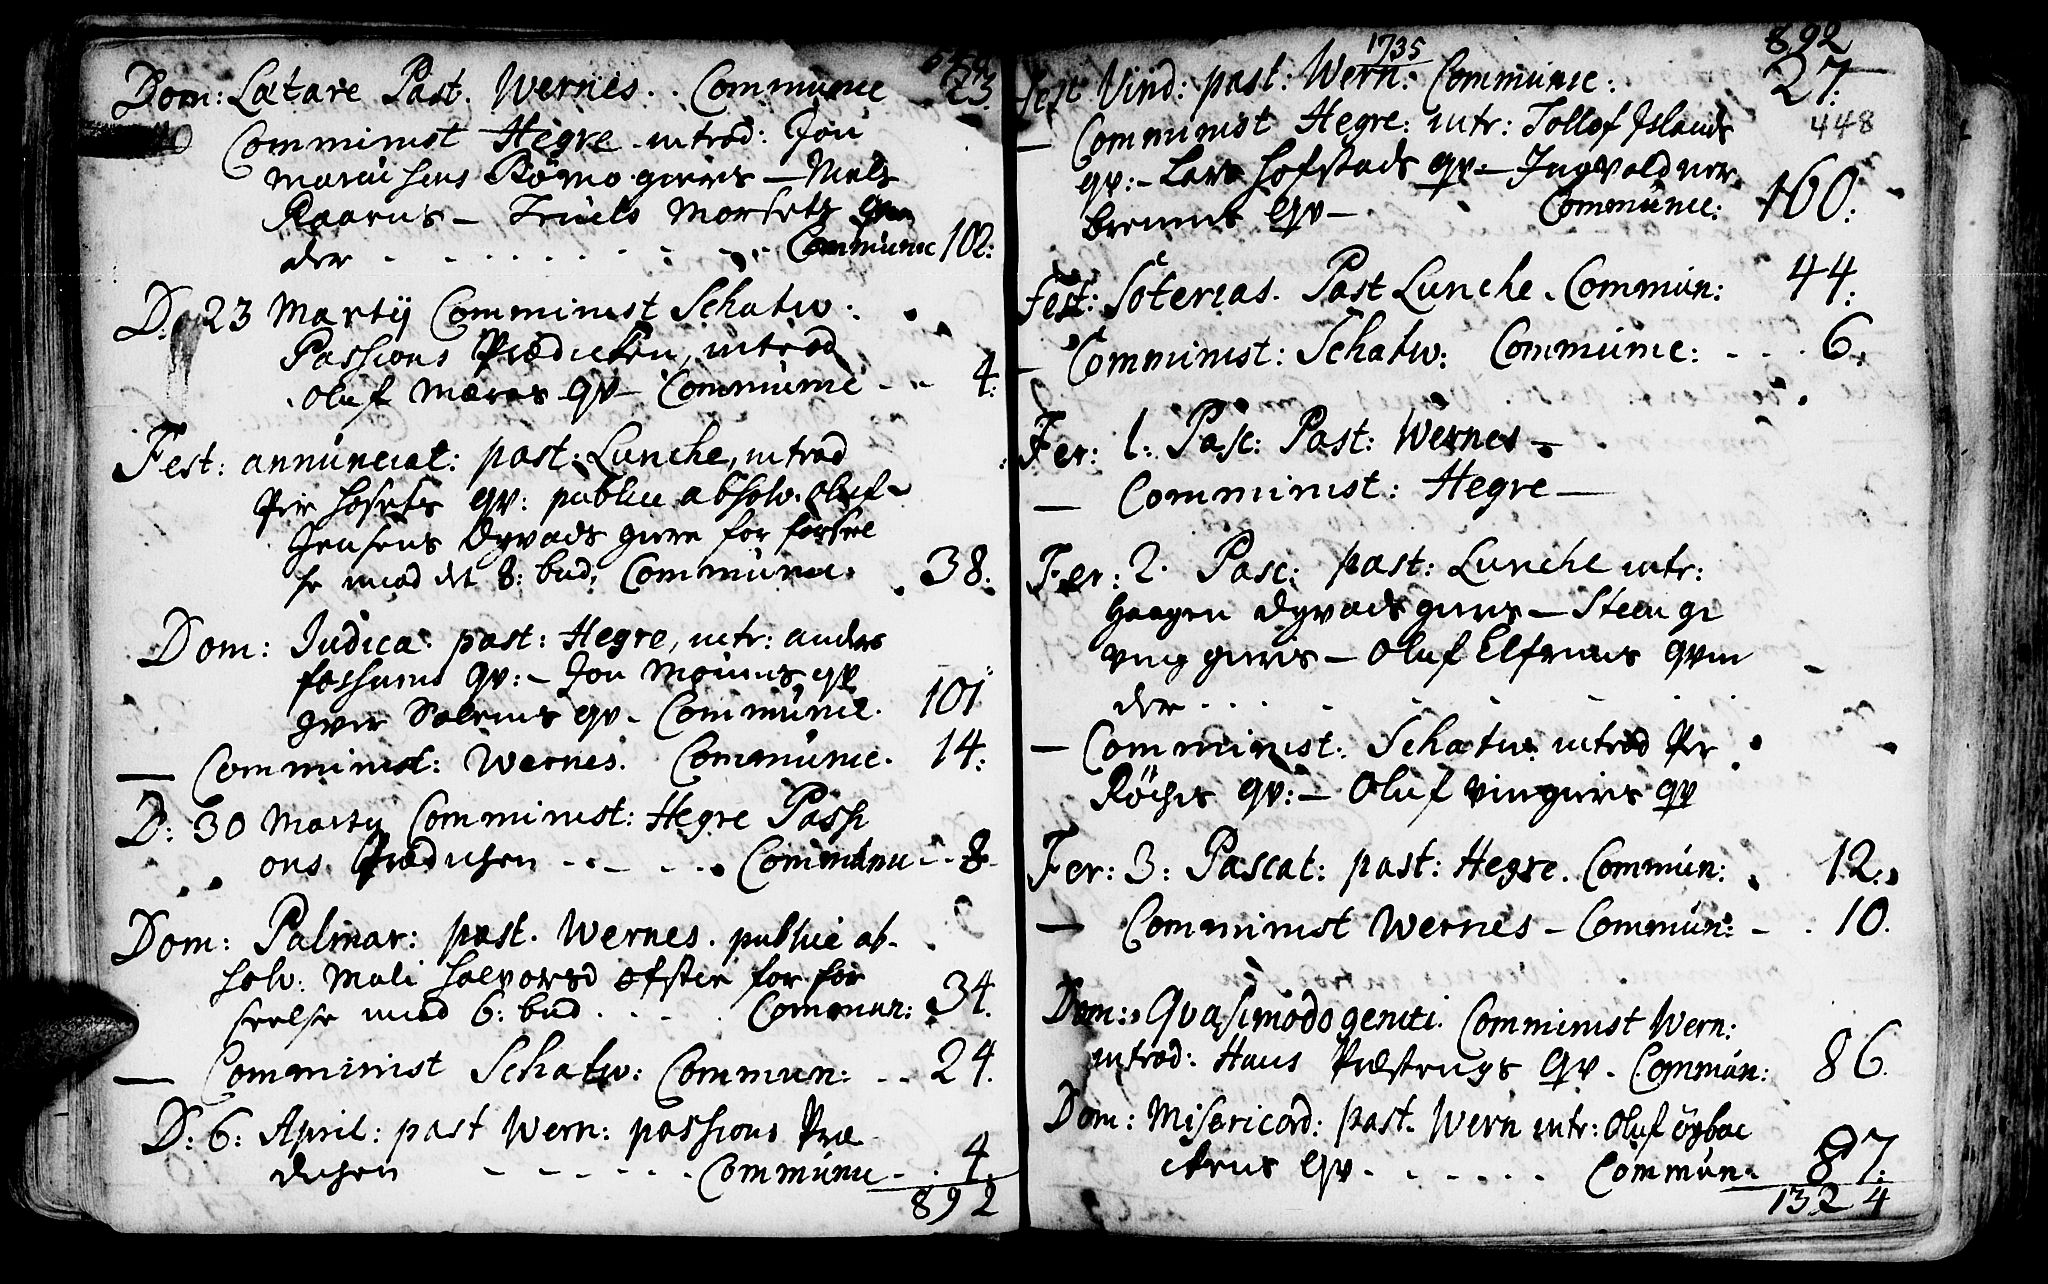 Dom: Lætare Past. Wernes. Commune 23.
Comminist Hegre introd: Jon
Kaarus — Truls Morsets qvin
der - - - - - - Commune 102:
D: 23 Martij Comminist Schatw:
Passions Prædicken, introd
Oluf Mæraas qv — Commune - - 4:
Fest: annunciat: past: Lunche, introd
Per Hofsets qv: publice absolv. Oluf
Jensens Dyvads for forsee
se mod det 8: bud, Commune. 38.
Dom: Judica: past: Hegre, intr: anders
fossums qv: — Jon Moums qv
qv. Commune. 101
— Comminist: Wernes. Commune. 14:
D: 30 Marty Comminist: Hegre Passi
ons Prædichen - - - - Commune - - 8
Dom: Palmar: past. Wernes. publice ab-
solv. Mali Halvorsd efter for for
seelse mod 6: bud - - - Commun: 34.
— Comminist Schatw: Commun: - - 24.
D: 6: April: past Wern: passions Præ
dichen - - - - - - Commune - 4.
892
1735
892
fest Vird: past: Wern: Commune: 27.
— Comminist Hegre: intr: Tollof Islands 448
qv: — Lars Hofstads qv — Ingvald nor
brenns qv — Commune: 160:
fest: Soterias. Past Lunche. Commun: 44:
— Comminist: Schatw: Commune: - - 6.
Fer: 1: Pasc: Past: Wernes —
— Comminist: Hegre —
Fer: 2. Pasc: past: Lunche intr:
Haagen Dyvads — Steen
— Oluf Elfraas qvin
der - - -
— Comminist: Schatw: introd Per
qv: — Oluf qv
Fer: 3: Pascat: past: Hegre. Commun: 12:
— Comminist Wernes — Commun: - . 10.
Dom: Qvasimodogeniti. Comminist Wern:
introd: Hans qv. Commun: 86.
Dom: Misericord: past. Wern intr: Oluf öybac
kens qv - - - - - Commun. 87:
1324